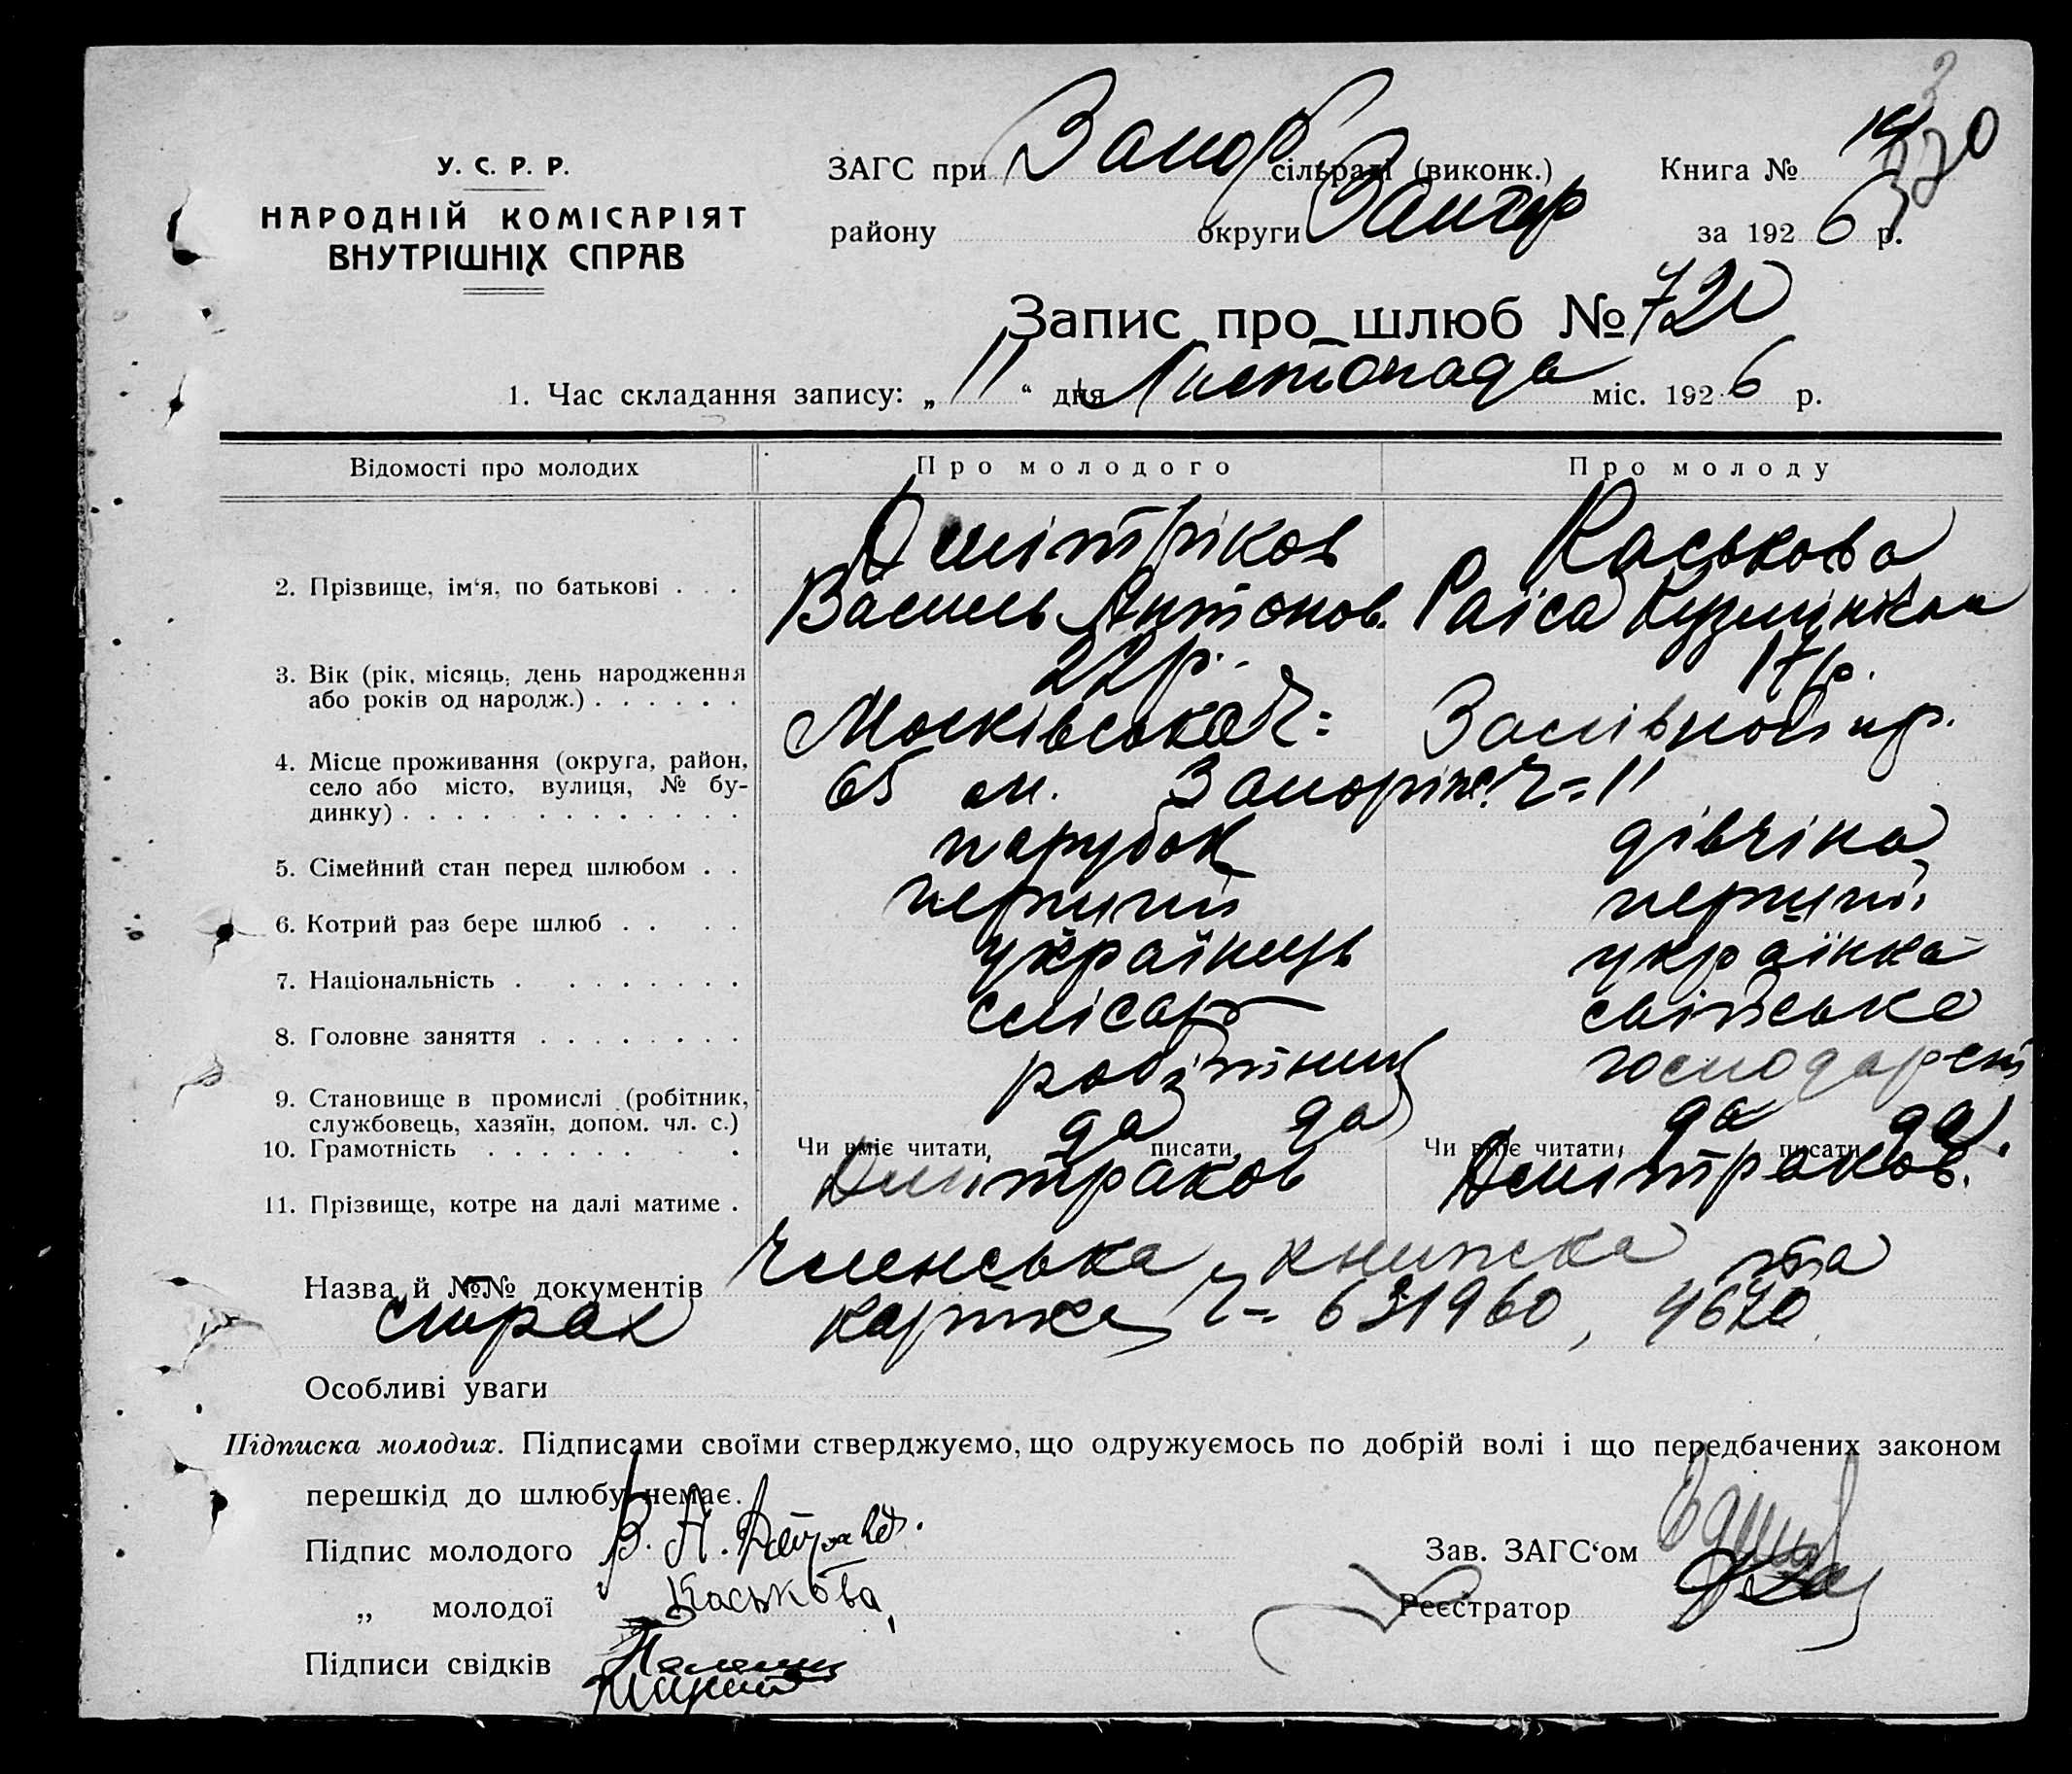 У. С. Р. Р.
НАРОДНІЙ КОМІСАРІЯТ
ВНУТРІШНІХ СПРАВ
ЗАГС при Запор сільраді (виконк.) Книга №
району округи Запор за 1926 р.
Запис про шлюб № 720
1. Час складання запису: „ 11 “ дня Листопада міс. 1926 р.
Відомості про молодих Про молодого Про молоду
2. Прізвище, ім‘я, по батькові . . . Дмітріков Василь Антонов. Каськова Раїса Кузмінісна
3. Вік (рік, місяць, день народження
або років од народж.) . . . . . . 22 р. 17 р.
4. Місце проживання (округа, район,
село або місто, вулиця, № бу-
динку) . . . . . . . . . . . . . . Московська Ч= 65 м. Запоріж. Ч= 11
5. Сімейний стан перед шлюбом . . парубок дівчіна
6. Котрий раз бере шлюб . . . . перший перший
7. Національність . . . . . . . . українець українка
8. Головне заняття . . . . . . . . слісар сільське
9. Становище в промислі (робітник,
службовець, хазяїн, допом. чл. с.) робітник господарст
10. Грамотність . . . . . . . . Чи вміє читати, да писати да Чи вміє читати, да писати да
11. Прізвище, котре на далі матиме . Дмитраков Дмітраков.
Назва й №№ документів членська книжка та
страх картка Ч= 631960, 4670
Особливі уваги
Підписка молодих. Підписами своїми стверджуємо, що одружуємось по добрій волі і що передбачених законом
перешкід до шлюбу немає.
Підпис молодого В. А. Зав. ЗАГС‘ом
„ молодої Каськова Реєстратор
Підписи свідків